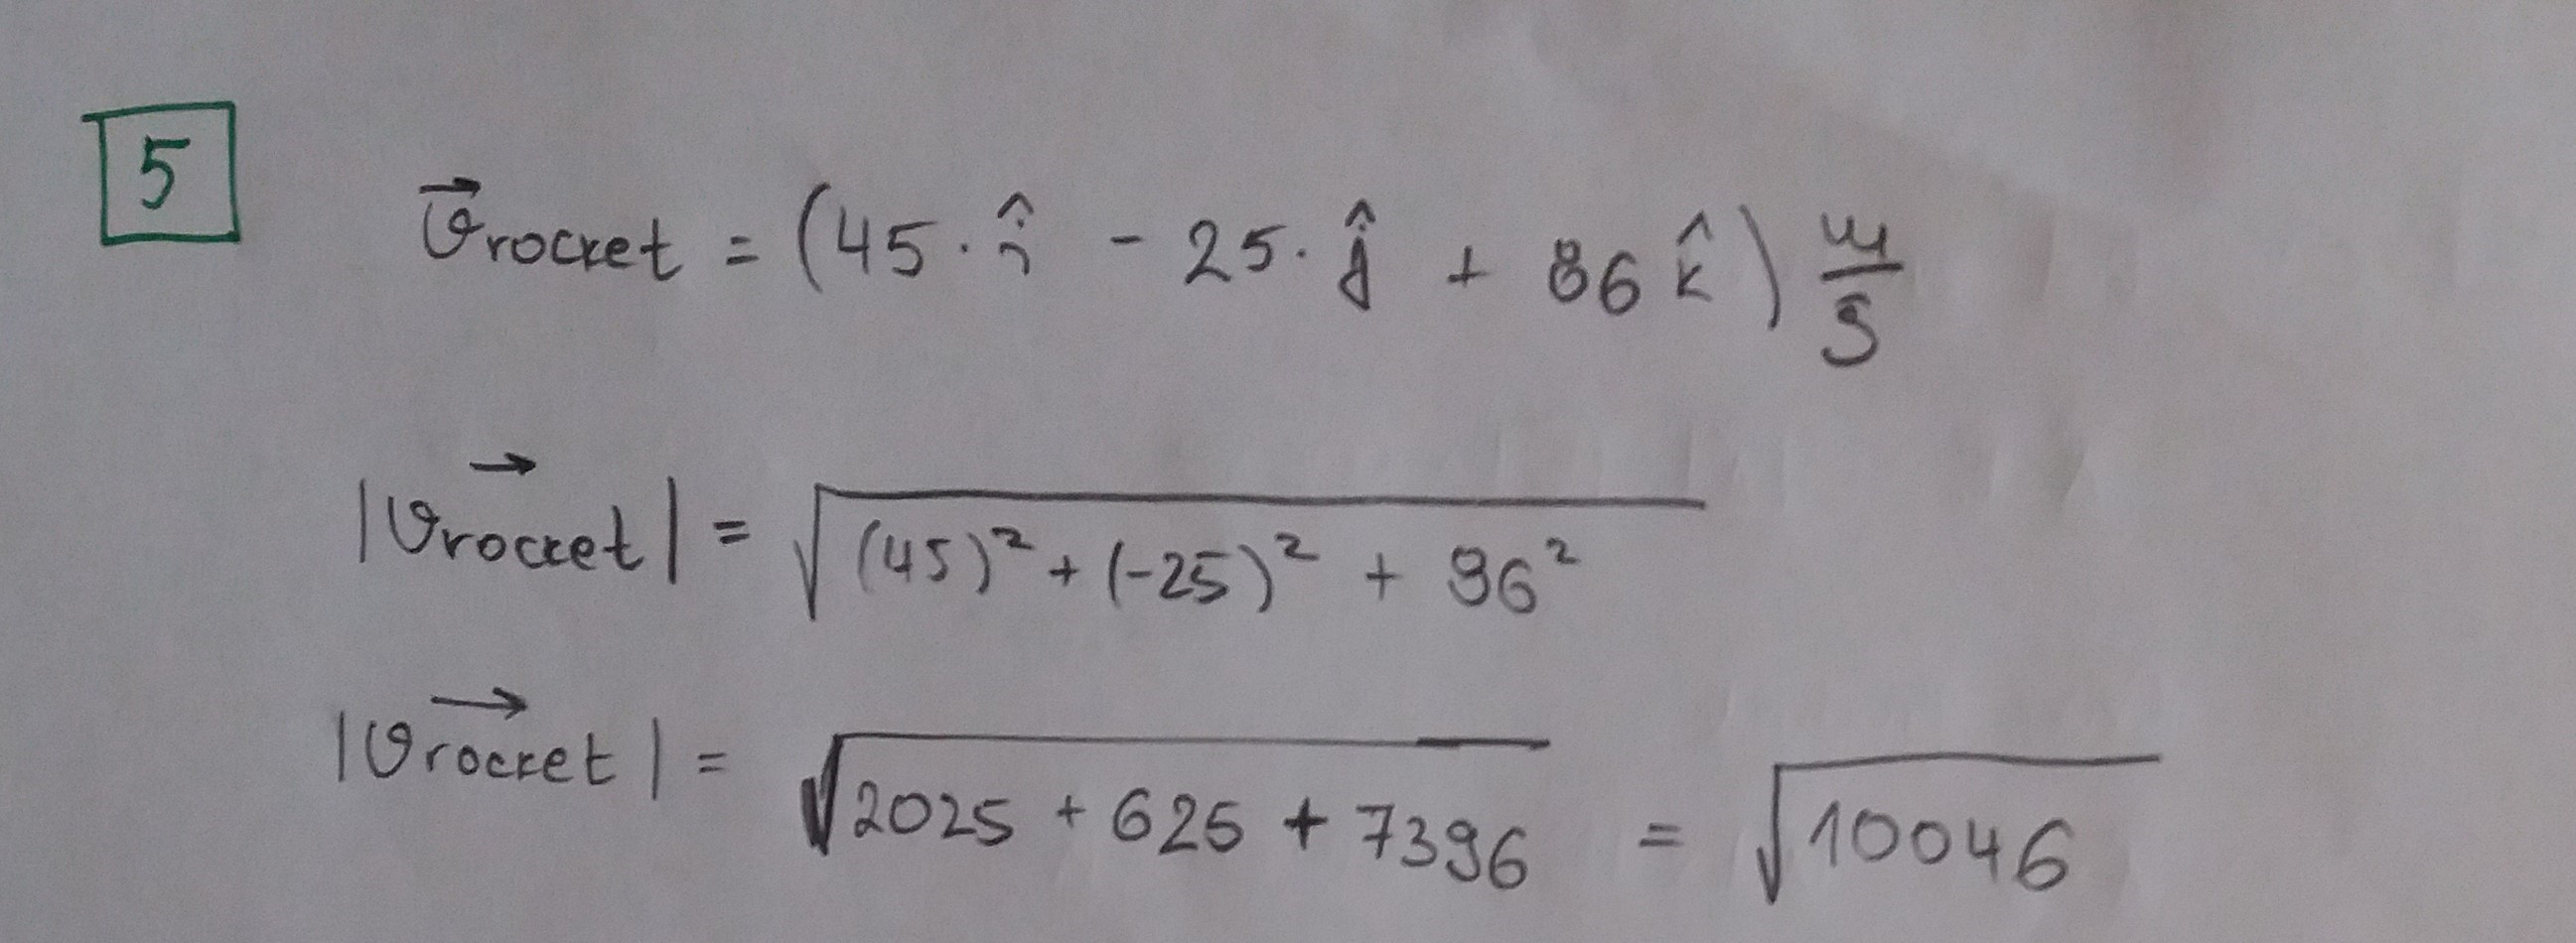 5
v⃗rocket = (45·î - 25·ĵ + 86k̂) m/s
|v⃗rocket| = √((45)² + (-25)² + 96²)
|v⃗rocket| = √(2025 + 625 + 7396) = √10046